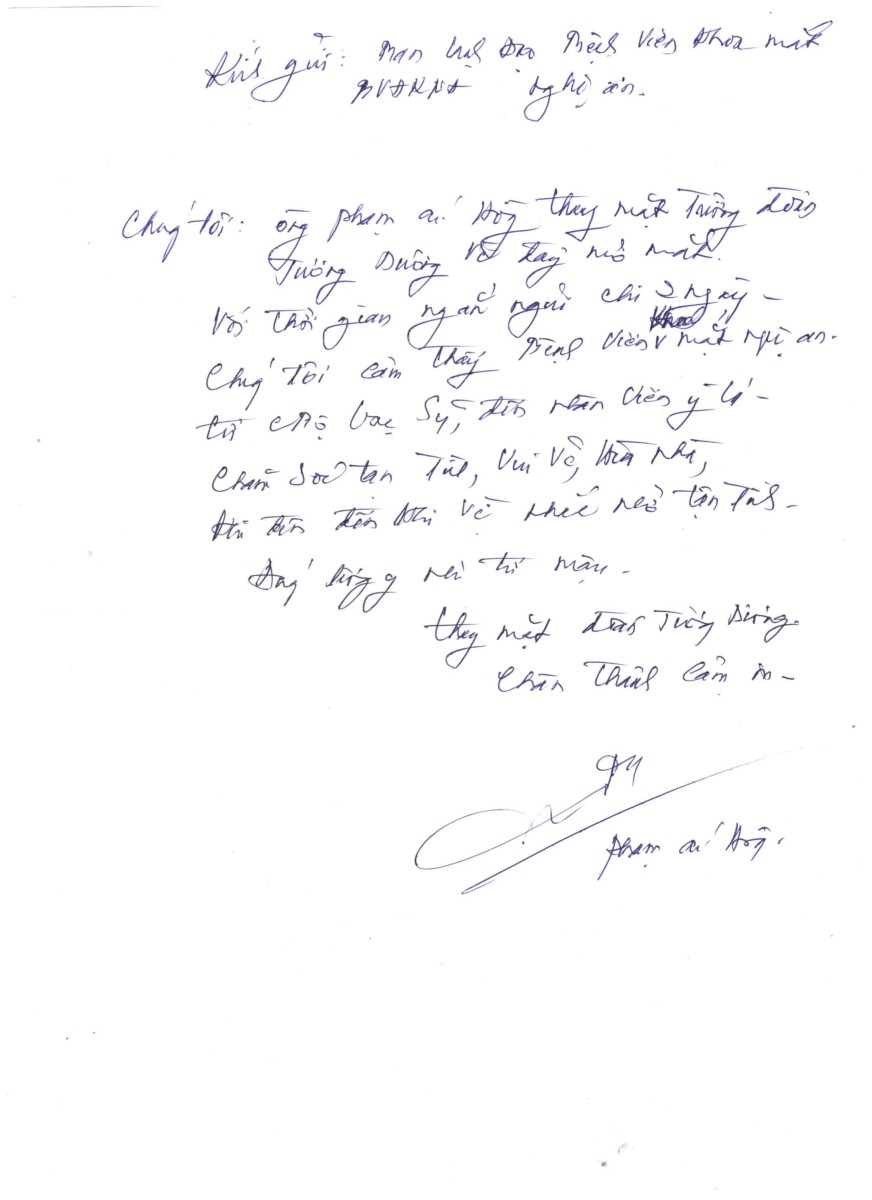 Kính gửi: Ban lãnh đạo Bệnh viện khoa mắt
BVĐKNA nghệ an.
Chúng tôi: ông phạm Hồng thay mặt Trưởng đoàn
Tương Dương Về mổ mắt.
Với thời gian ngắn ngủi chỉ 2 ngày -
Chúng tôi cảm thấy Bệnh viện mắt nghệ an.
từ bác Sỹ, đến nhân viên y tá -
Chăm Sóc tận Tình, Vui Vẻ, Hòa Nhã,
khi đến đến khi Về nhắc nhở tận Tình -
từ mẫu -
thay mặt đoàn Tương Dương.
Chân Thành Cảm ơn -
phạm Hồng.